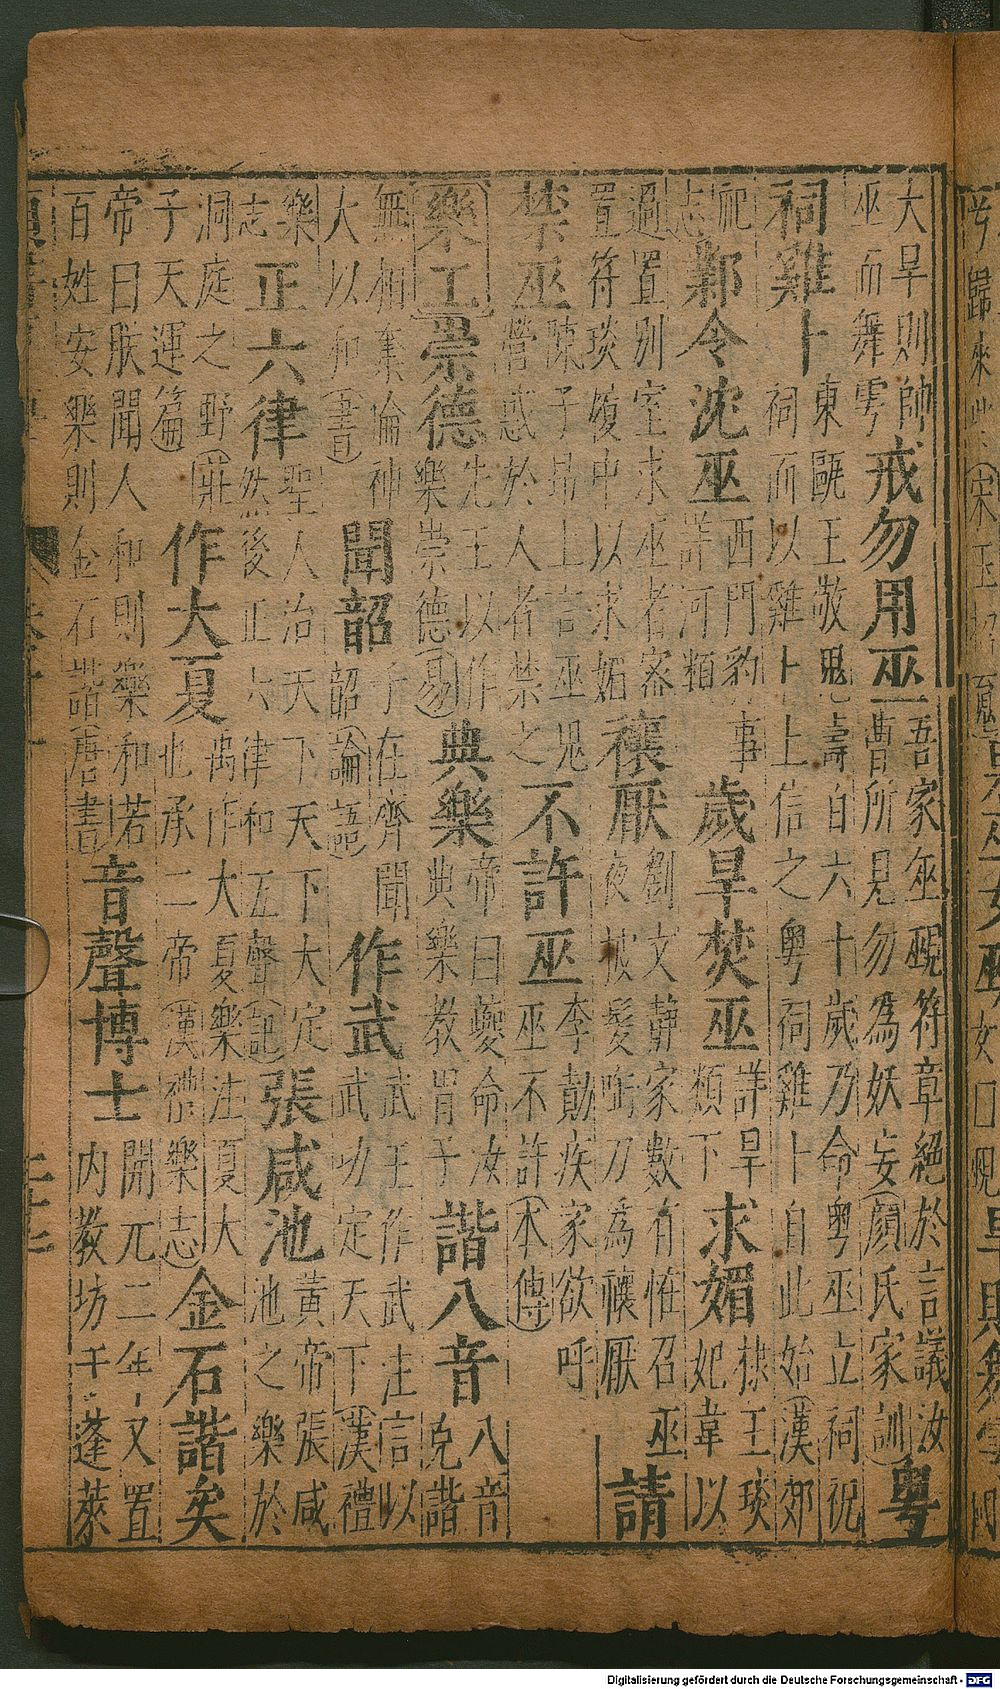 大旱則帥巫而舞雩戒勿用巫吾家巫覡符章絕於言議汝曹所見勿為妖妄顏氏家訓粵
祠雞卜東甌王敬鬼壽百六十歲乃命粵巫立祠祝祠而以雞卜上信之粵祠雞卜自此始漢郊
祀志鄴令沈巫西門豹事詳河類歲旱焚巫詳旱類下求媚棣王琰妃韋以
過置別室求巫者密置符琰中以求媚禳厭劉文靜家數有怪召巫夜披髮啣刀為禳厭請
禁巫陳子昂上言巫鬼營惑於人者禁之不許巫李勣疾家欲呼巫不許本傳
樂工崇德先王以作樂崇德易典樂帝曰夔命汝典樂教胄子諧八音八音克諧
無相奪倫神大以和書聞韶子在齊聞韶論語作武武王作武注言以武功定天下漢禮
樂志正六律聖人治天下天下大定然後正六律和五聲記張咸池黃帝張咸池之樂於
洞庭之野莊子天運篇作大夏禹作大夏樂注夏大也承二帝漢禮樂志金石諧矣
帝曰朕聞人和則樂和若百姓安樂則金石諧唐書音聲博士開元二年又置內教坊于蓬萊
Digitalisierung gefördert durch die Deutsche Forschungsgemeinschaft - DFG